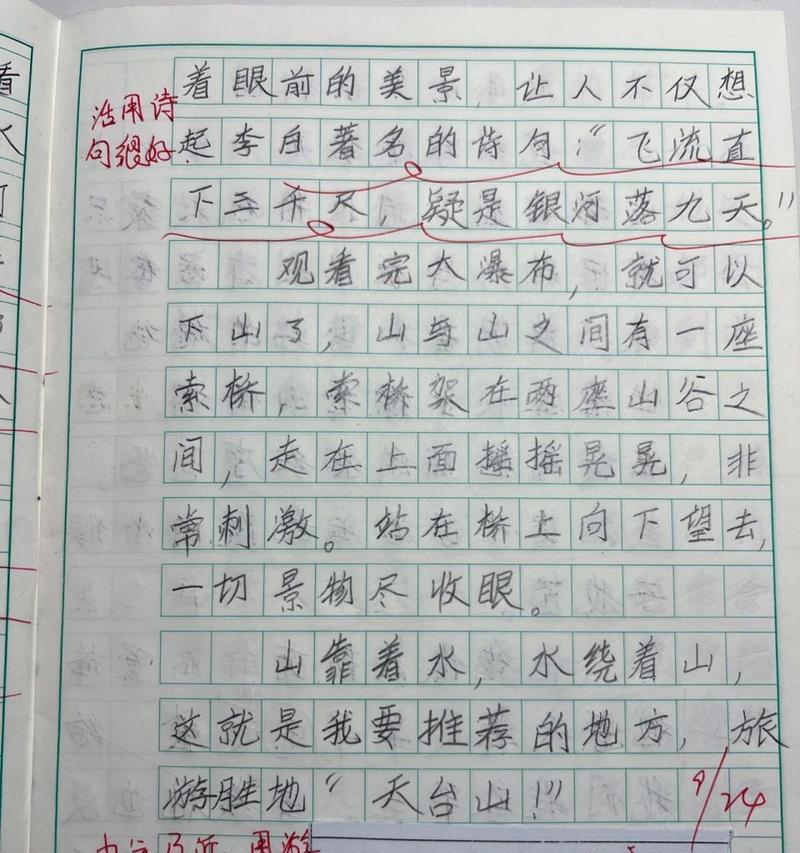 活用诗
句很好
着眼前的美景,让人不仅想
起李白著名的诗句:“飞流直
下三千尺,疑是银河落九天。”
观看完大瀑布,就可以
下山了,山与山之间有一座
索桥,索桥架在两座山谷之
间,走在上面摇摇晃晃,非
常刺激。站在桥上向下望去,
一切景物尽收眼。
山靠着水,水绕着山,
这就是我要推荐的地方,旅
游胜地“天台山!”
9/24